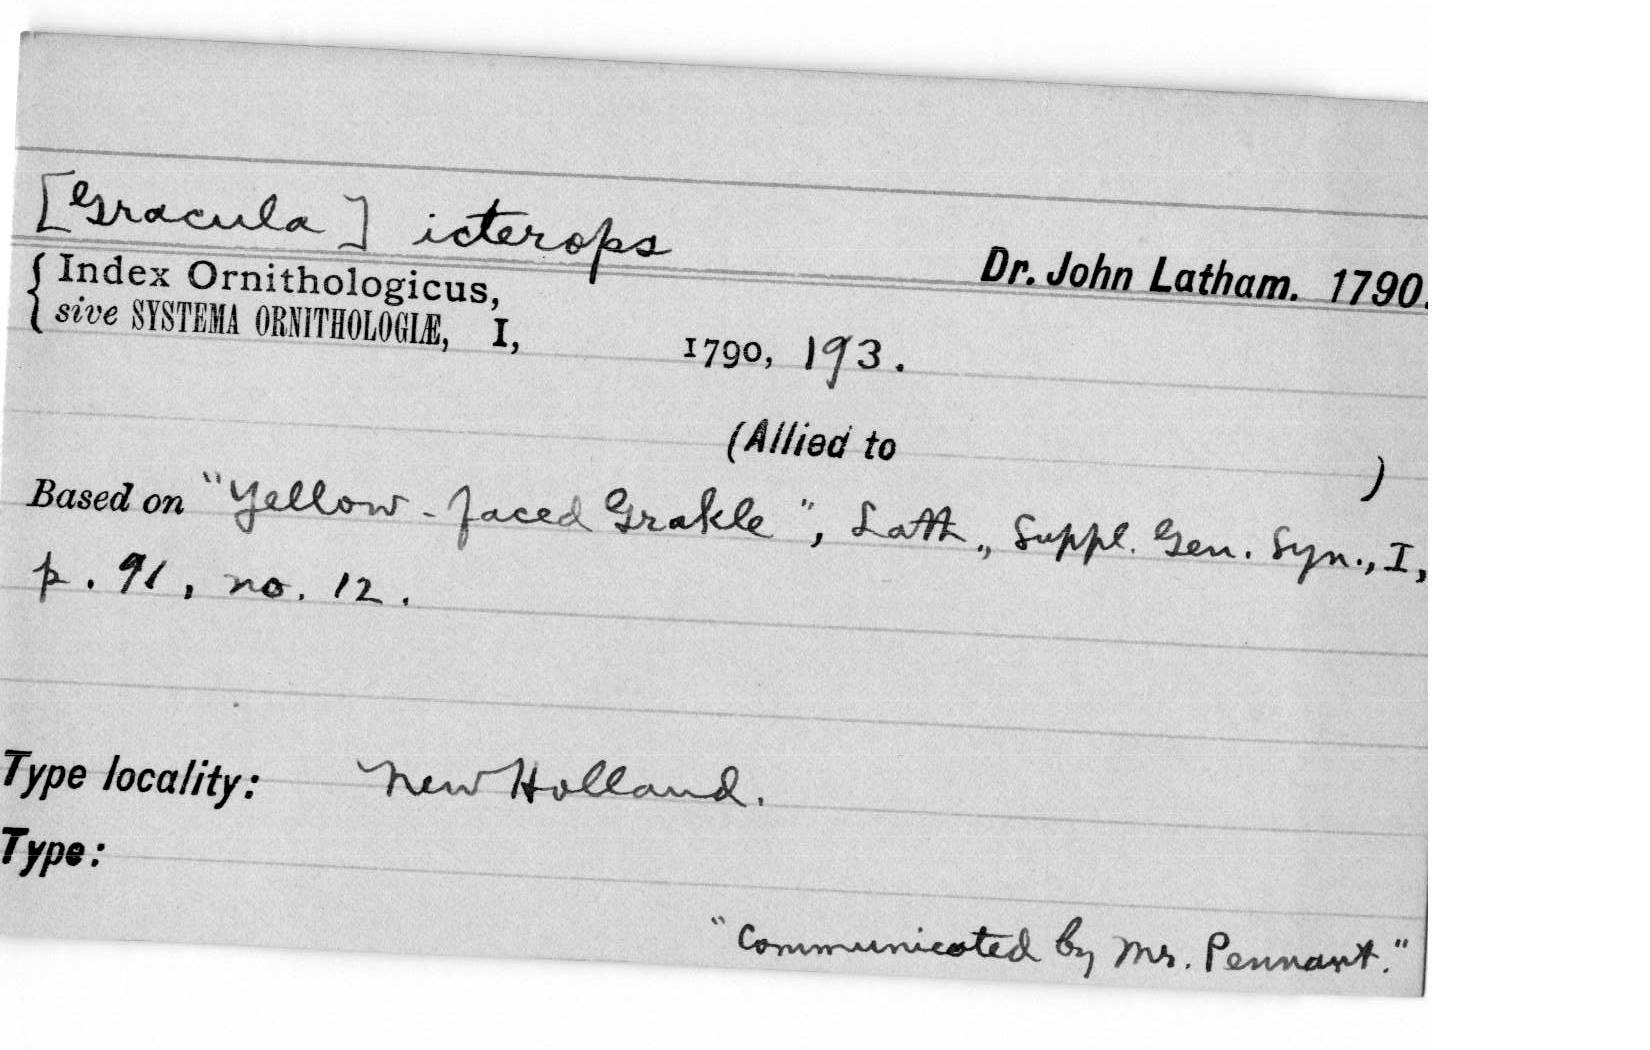 [Gracula] icterops
Dr. John Latham. 1790.
Index Ornithologicus,
sive SYSTEMA ORNITHOLOGIÆ, I, 1790, 193.
(Allied to )
Based on "Yellow-faced Grakle", Lath., Suppl. Gen. Syn., I,
p. 91, no. 12.
Type locality: New Holland.
Type:
"Communicated by Mr. Pennant."